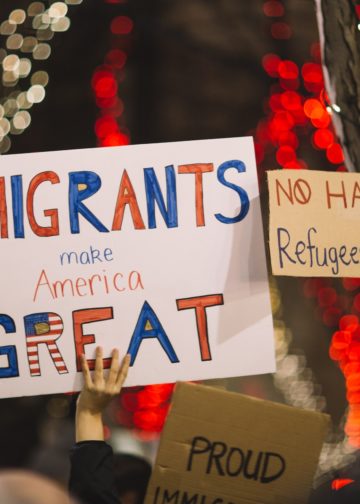 MIGRANTS
make
America
GREAT
NO HA
Refugee
PROUD
IMMIG